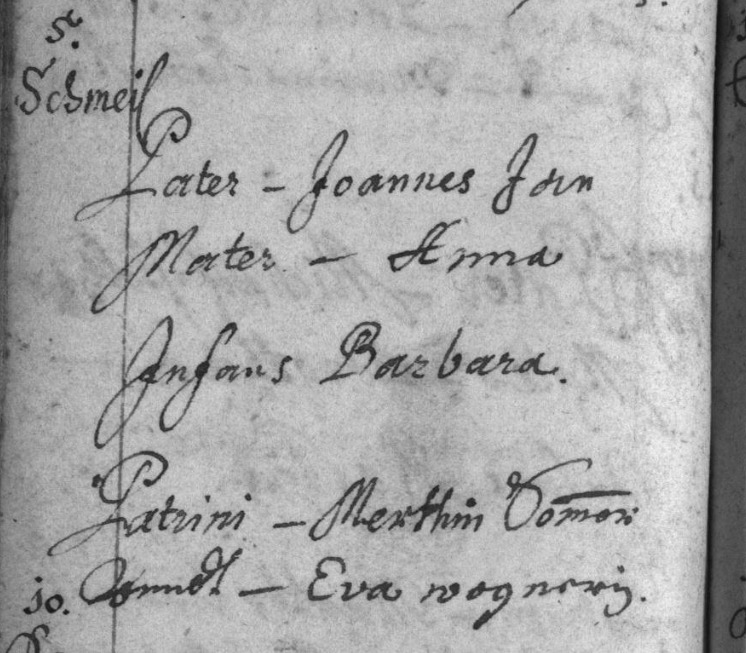 5.
Schmeil
Pater – Joannes Jan
Mater – Anna
Infans Barbara.
Patrini – Merthin
10. – Eva wagnerin.